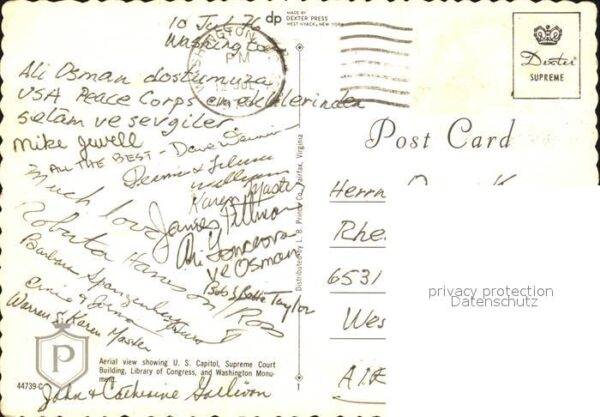 10 Jul 76
Washington
dp
MADE BY
DEXTER PRESS
WEST NYACK, NEW YORK
WASHINGTON
PM
12 JUL
Dexter
SUPREME
Ali Osman dostumuza
USA Peace Corps emeklilerinden
selâm ve sevgiler
Mike Jewell
ALL THE BEST - Dave
Dennis &
Williams
Karen Master
Much love
James Pittman
Roberta Hanson / Ross
Ali
ve Osman
Barbara
Bob & Taylor
Ernie &
Warren & Karen Master
John & Catherine Sullivan
Post Card
Herrn
Rhe
6531
Wes
privacy protection
Datenschutz
Distributed by L. B. Prince Co., Fairfax, Virginia
P
Aerial view showing U. S. Capitol, Supreme Court
Building, Library of Congress, and Washington Monu-
ment
44739-C
1